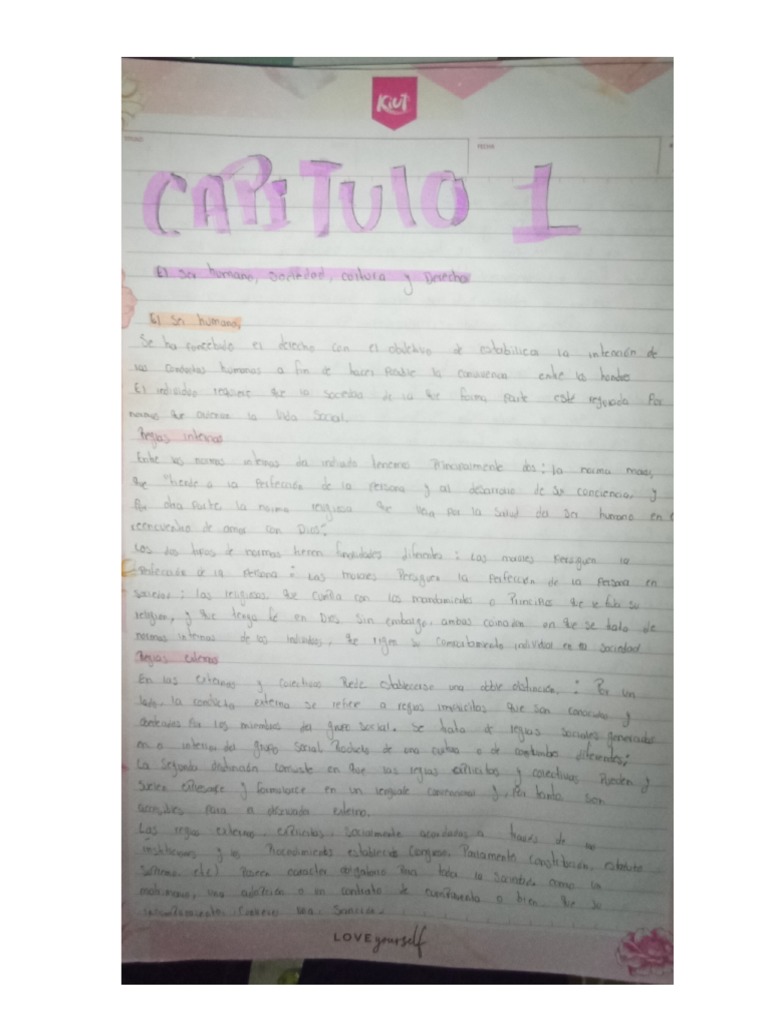 Kiut
FECHA
CAPITULO 1
El ser humano, sociedad, cultura y Derecho
El ser humano,
Se ha concebido el derecho con el objetivo de estabilizar la intención de
las conductas humanas a fin de hacer posible la convivencia entre los hombres
El individuo requiere que la sociedad de la que forma parte esté regulada por
normas que la vida social.
Reglas internas
Entre las normas internas del individuo tenemos principalmente dos: la norma moral,
que tiende a la perfección de la persona y al desarrollo de su conciencia, y
por otra parte, la norma religiosa que vela por la salud del ser humano en
reencuentro de amor con Dios:
Los dos tipos de normas tienen finalidades diferentes: Las morales persiguen la
perfección de la persona: Las morales persiguen la perfección de la persona en
sociedad; las religiosas, que cumpla con los mandamientos o principios que su
religión, y que tenga fé en Dios Sin embargo, ambas coinciden en que se trata de
normas internas de los individuos, que rigen su comportamiento individual en su sociedad
Reglas externas
En las externas y colectivas puede establecerse una doble distinción: Por un
lado, la conducta externa se refiere a reglas implícitas que son conocidas y
aceptadas por los miembros del grupo social. Se trata de reglas sociales generadas
en el interior del grupo social producto de una cultura o de costumbres diferentes;
La segunda distinción consiste en que las reglas explícitas y colectivas pueden y
suelen expresarse y formularse en un lenguaje convencional y, por tanto son
accesibles para la externo.
Las reglas externas, explícitas, socialmente acordadas a través de las
instituciones y los procedimientos establecidos Congreso, Parlamento, Constitución, estatuto
etc) poseen carácter obligatorio para toda la sociedad como un
matrimonio, una adopción o un contrato de o bien que su
incumplimiento una sanción.
LOVE yourself